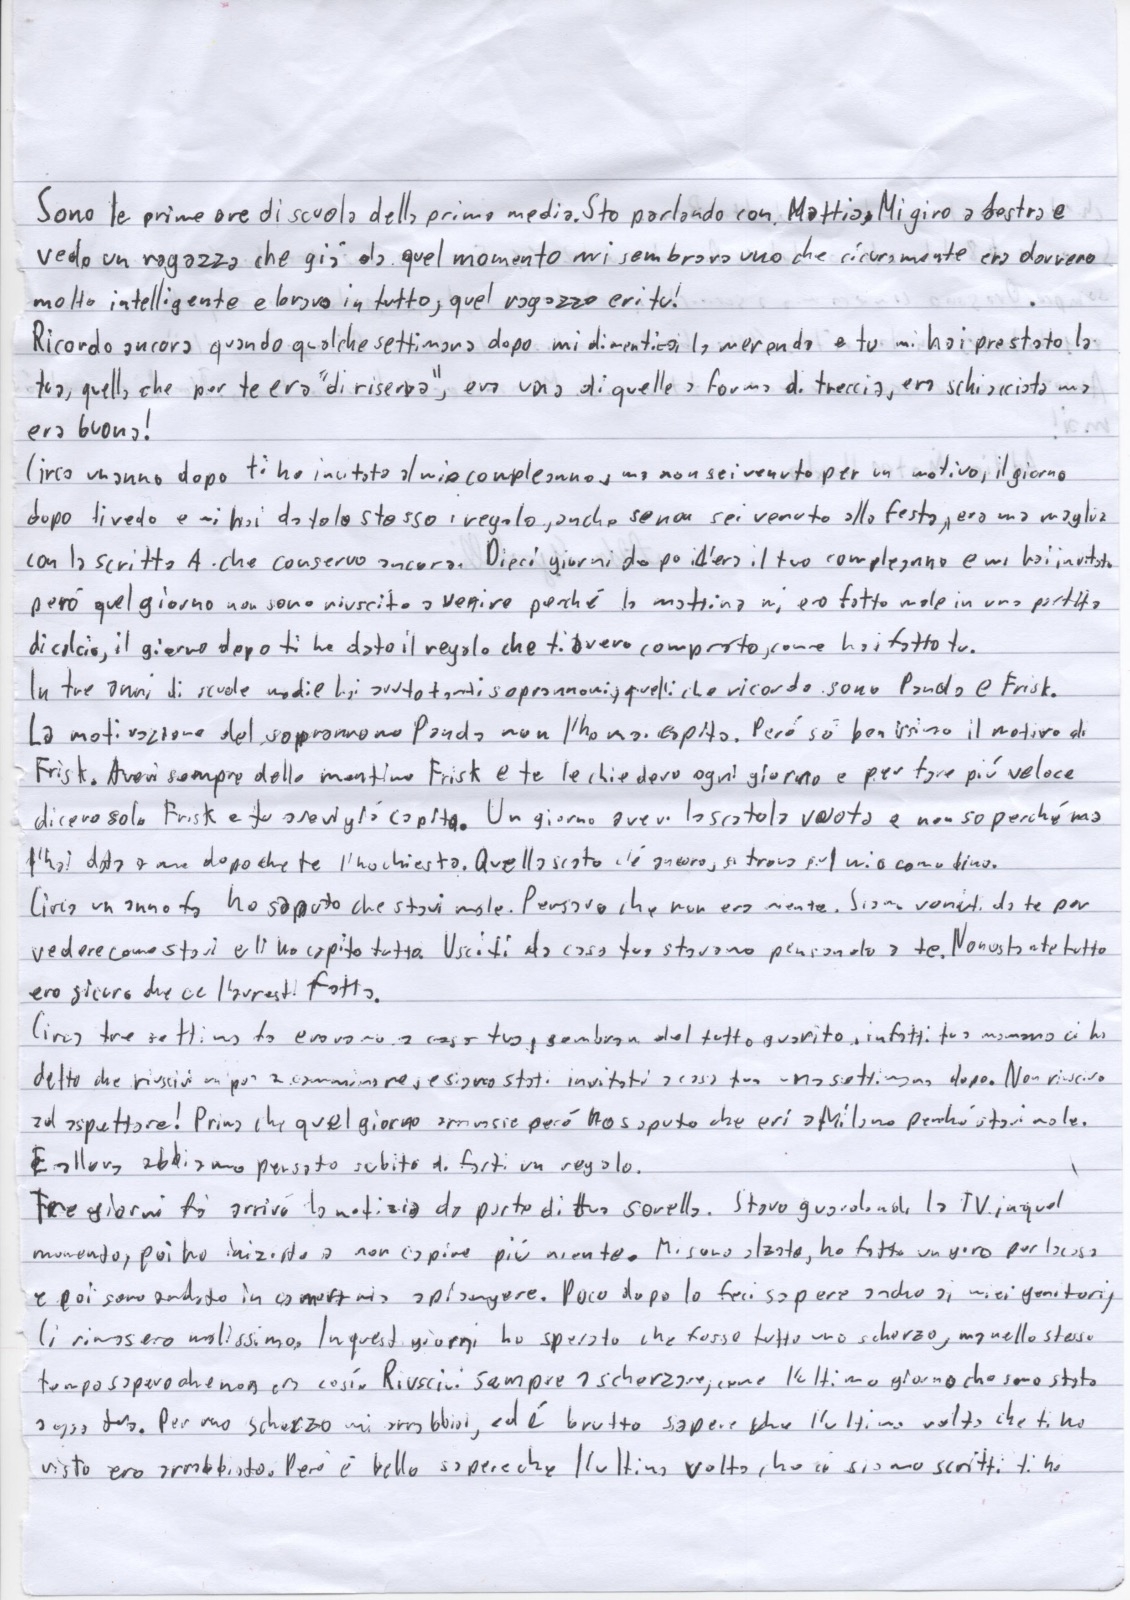 Sono le prime ore di scuola della prima media. Sto parlando con Mattia, Mi giro a destra e
vedo un ragazzo che giá da quel momento mi sembrava uno che sicuramente era davvero
molto intelligente e bravo in tutto, quel ragazzo eri tu!
Ricordo ancora quando qualche settimana dopo mi dimenticai la merenda e tu mi hai prestato la
tua, quella che per te era "di riserva", era una di quelle a forma di treccia, era schiacciata ma
era buona!
Circa un anno dopo ti ho invitato al mio compleanno, ma non sei venuto per un motivo, il giorno
dopo ti vedo e mi hai dato lo stesso i regalo, anche se non sei venuto alla festa, era ma maglia
con la scritta A che conservo ancora. Dieci giorni dopo era il tuo compleanno e mi hai invitato
peró quel giorno non sono riuscito a venire perché la mattina mi ero fatto male in una partita
di calcio, il giorno dopo ti ho dato il regalo che ti avevo comprato, come hai fatto tu.
In tre anni di scuole medie hai avuto tanti soprannomi, quelli che ricordo sono Panda e Frisk.
La motivazione del soprannome Panda non l'ho mai capita. Peró só benissimo il motivo di
Frisk. Avevi sempre delle mentine Frisk e te le chiedevo ogni giorno e per fare piú veloce
dicevo solo Frisk e tu avevi giá capito. Un giorno avevi la scatola vuota e non so perché ma
l'hai data a me dopo che te l'ho chiesta. Quella scato c'é ancora, si trova sul mio comodino.
Circa un anno fa ho saputo che stavi male. Pensavo che non era niente. Siamo venuti da te per
vedere come stavi e lí ho capito tutto. Usciti da casa tua stavamo pensando a te. Nonostante tutto
ero sicuro che ce l'avresti fatta.
Circa tre settima fa eravamo a casa tua, sembravi del tutto guarito, infatti tua mamma ci ha
detto che riuscivi un po' a camminare, e siamo stati invitati a casa tua una settimana dopo. Non riuscivo
ad aspettare! Prima che quel giorno arrivasse peró ho saputo che eri a Milano perché stavi male.
E allora abbiamo pensato subito di farti un regalo.
Tre giorni fá arrivó la notizia da parte di tua sorella. Stavo guardando la TV in quel
momento, poi ho iniziato a non capire piú niente. Mi sono alzato, ho fatto un giro per la casa
e poi sono andato in camera mia a piangere. Poco dopo lo feci sapere anche ai miei genitori,
ci rimasero malissimo. In questi giorni ho sperato che fosse tutto uno scherzo, ma nello stesso
tempo sapevo che non era cosí. Riuscivi sempre a scherzare, come l'ultimo giorno che sono stato
a casa tua. Per uno scherzo mi arrabbiai, ed é brutto sapere che l'ultima volta che ti ho
visto ero arrabbiato. Peró é bello sapere che l'ultima volta che ci siamo scritti ti ho